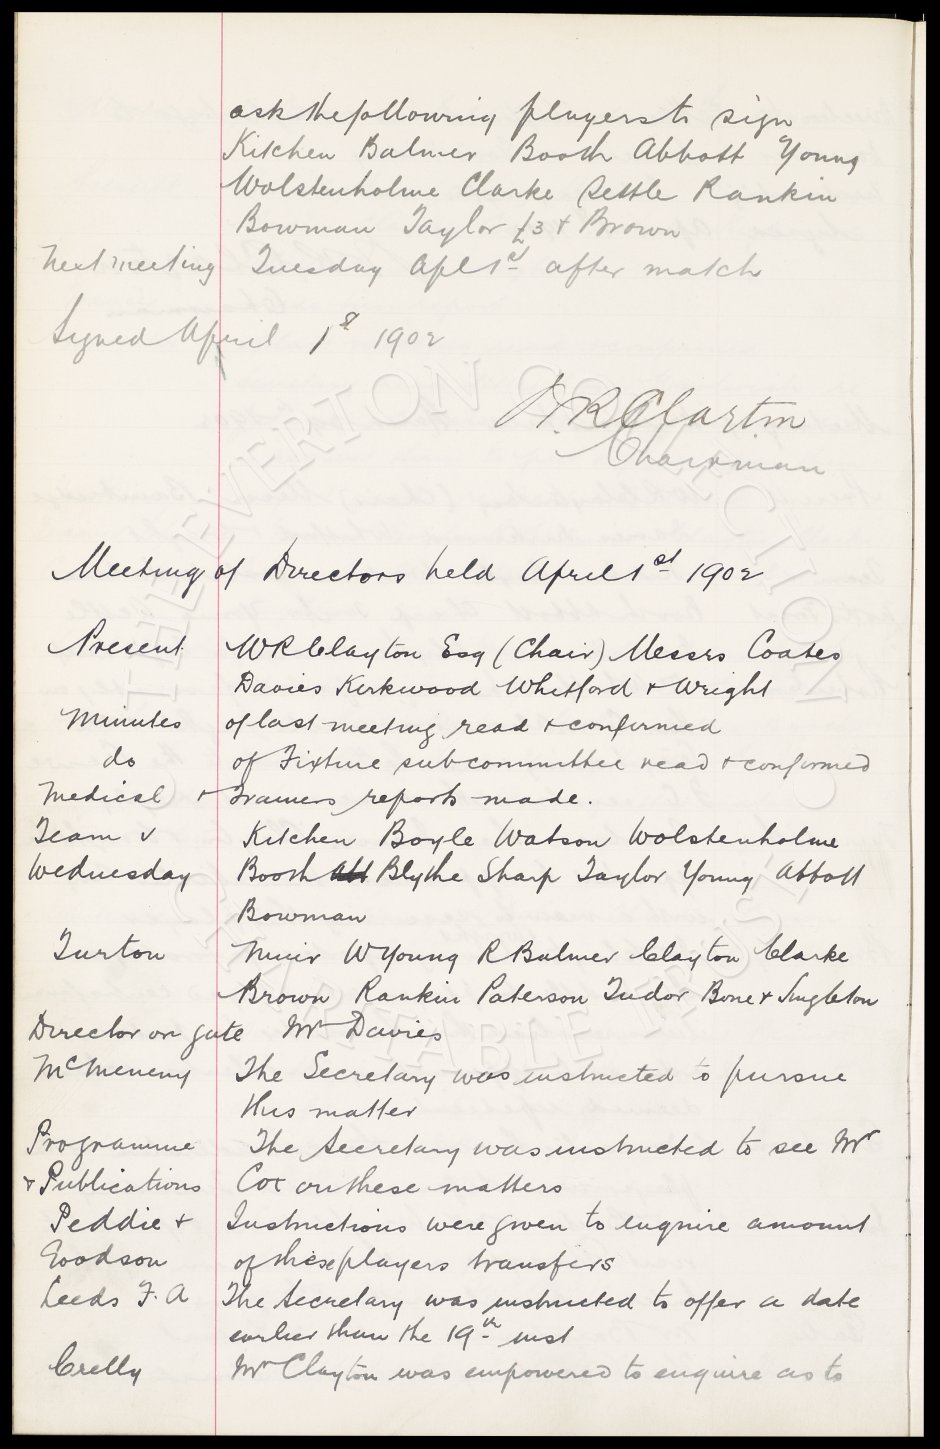 ask the following players to sign
Kitchen Balmer Booth Abbott Young
Wolstenholme Clarke Settle Rankin
Bowman Taylor £3 + Brown
Next meeting Tuesday Apl 1st after match
Signed April 1st 1902
W.R. Clayton
Chairman
Meeting of Directors held April 1st 1902
Present W R Clayton Esq (Chair) Messrs Coates
Davies Kirkwood Whitford + Wright
Minutes of last meeting read + confirmed
do of Fixture sub committee read + confirmed
Medical + Trainers reports made.
Team v Kitchen Boyle Watson Wolstenholme
Wednesday Booth Abb Blythe Sharp Taylor Young Abbott
Bowman
Turton Muir W Young R Balmer Clayton Clarke
Brown Rankin Paterson Tudor Bone + Singleton
Director on gate Mr Davies
McMenemy The Secretary was instructed to pursue
this matter
Programme The Secretary was instructed to see Mr
+ Publications Cox on these matters
Peddie + Instructions were given to enquire amount
Goodson of these players transfers
Leeds F. A The Secretary was instructed to offer a date
earlier than the 19th inst
Crelly Mr Clayton was empowered to enquire as to